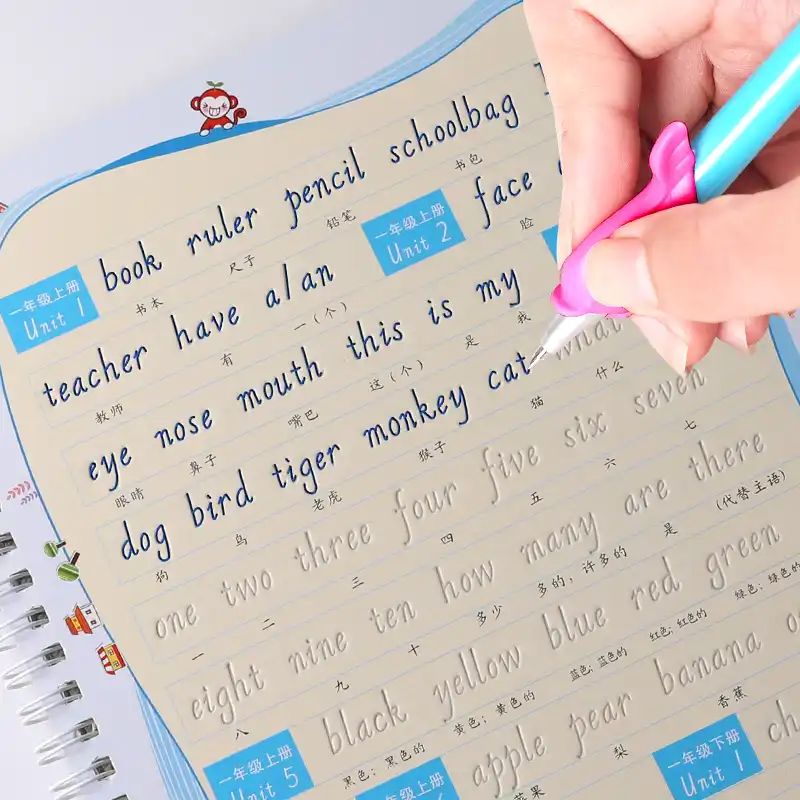 一年级上册
Unit 1
book ruler pencil schoolbag
书本 尺子 铅笔 书包
teacher have a/an
教师 有 一（个）
一年级上册
Unit 2
face
脸
eye nose mouth this is my
眼睛 鼻子 嘴巴 这（个） 是 我
dog bird tiger monkey cat what
狗 鸟 老虎 猴子 猫 什么
one two three four five six seven
一 二 三 四 五 六 七
eight nine ten how many are there
八 九 十 多少 多的，许多的 是 (代替主语)
一年级上册
Unit 5
black yellow blue red green
黑色；黑色的 黄色；黄色的 蓝色；蓝色的 红色；红色的 绿色；绿色的
一年级上册
apple pear banana
苹果 梨 香蕉
一年级下册
Unit 1